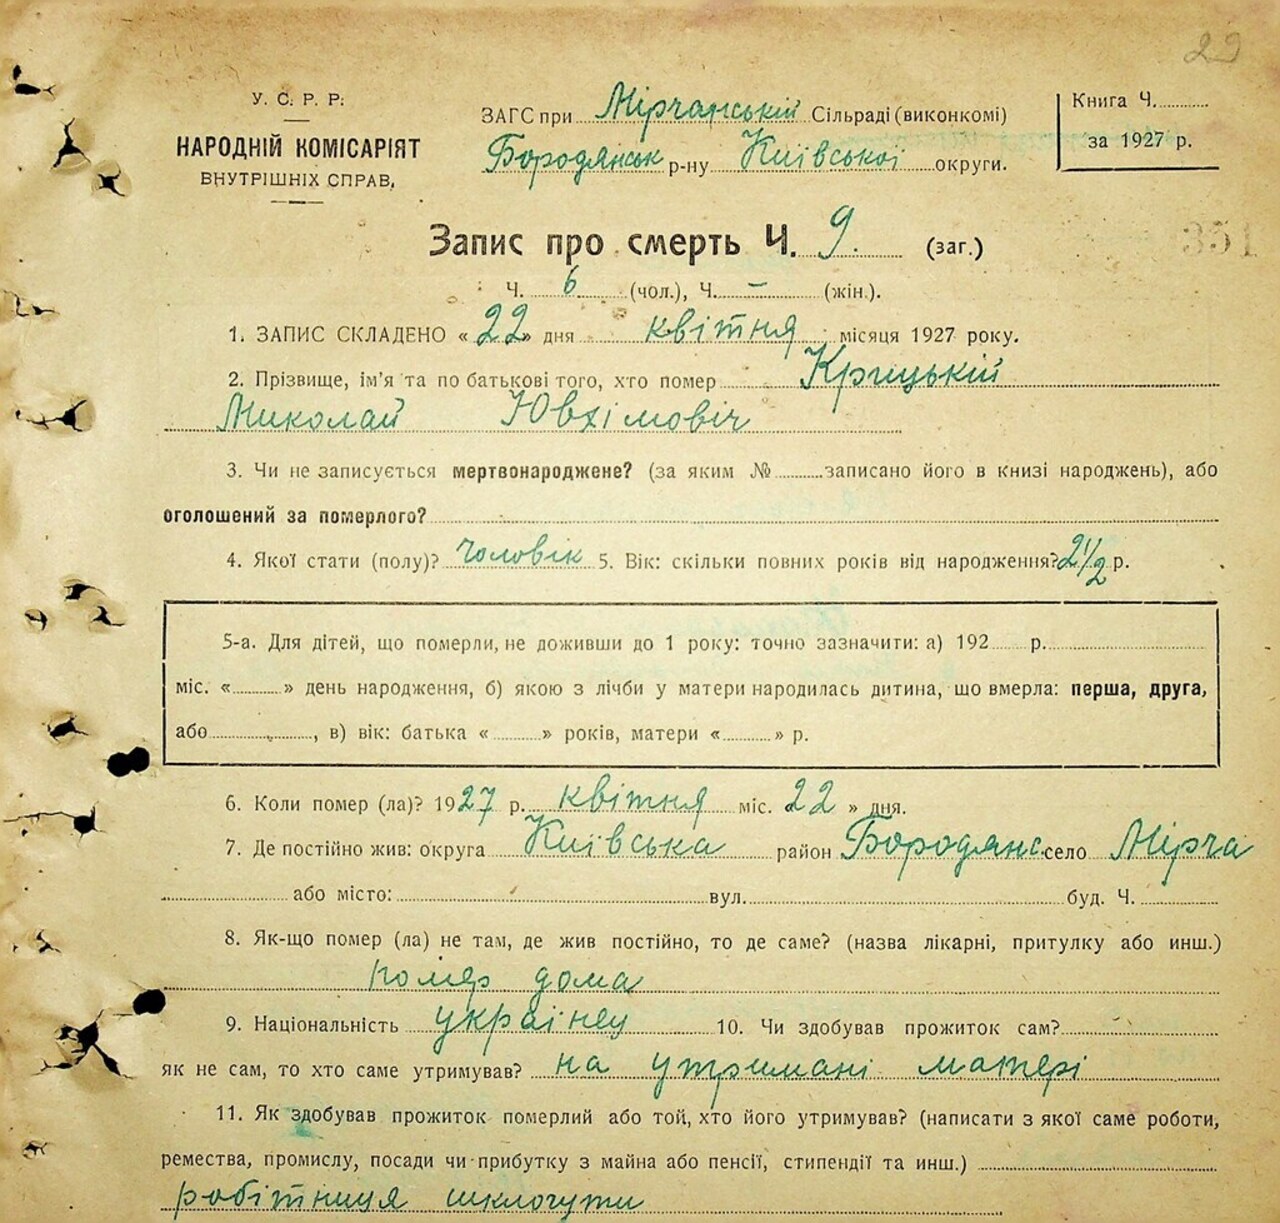 29
У. С. Р. Р.
НАРОДНІЙ КОМІСАРІЯТ
ВНУТРІШНІХ СПРАВ,
ЗАГС при Мірчанській Сільраді (виконкомі)
Бородянськ р-ну Київської округи.
Книга Ч.
за 1927 р.
351
Запис про смерть Ч. 9. (заг.)
Ч. 6 (чол.), Ч. – (жін.).
1. ЗАПИС СКЛАДЕНО «22» дня квітня місяця 1927 року.
2. Прізвище, ім'я та по батькові того, хто помер Крицькій
Миколай Ювхімовіч
3. Чи не записується мертвонароджене? (за яким № записано його в книзі народжень), або
оголошений за померлого?
4. Якої стати (полу)? чоловік 5. Вік: скільки повних років від народження? 2 1/2 р.
5-а. Для дітей, що померли, не доживши до 1 року: точно зазначити: а) 192 р.
міс. « » день народження, б) якою з лічби у матери народилась дитина, що вмерла: перша, друга,
або , в) вік: батька « » років, матери « » р.
6. Коли помер (ла)? 1927 р. квітня міс. «22 » дня.
7. Де постійно жив: округа Київська район Бородянс село Мірча
або місто: вул. буд. Ч.
8. Як-що помер (ла) не там, де жив постійно, то де саме? (назва лікарні, притулку або инш.)
помер дома
9. Національність українец 10. Чи здобував прожиток сам?
як не сам, то хто саме утримував? на утримані матері
11. Як здобував прожиток померлий або той, хто його утримував? (написати з якої саме роботи,
ремества, промислу, посади чи прибутку з майна або пенсії, стипендії та инш.)
робітниця шклогути